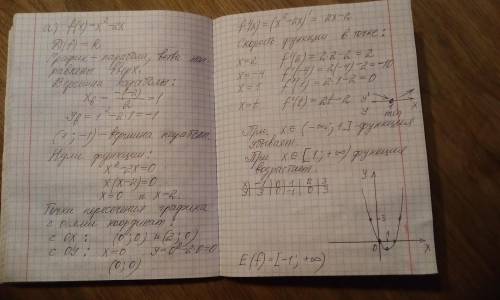 а) f(x)=x²-2x
D(f)=R
График - парабола, ветви нап-
равлены вверх.
Вершина параболы:
x₀ = -(-2)/2 = 1
y₀ = 1²-2·1=-1
(1;-1) - вершина параболы.
Нули функции:
x²-2x=0
x(x-2)=0
x=0 и x=2.
Точки пересечения графика
с осями координат:
с OX: (0;0) и (2;0)
с OY: x=0 y=0²-2·0=0
(0;0)
f'(x)=(x²-2x)'=2x-2
Скорость функции в точке:
x=2 f'(2)=2·2-2=2
x=-4 f'(-4)=2(-4)-2=-10
x=1 f'(1)=2·1-2=0
x=t f'(t)=2t-2
min
При x∈(-∞;1] - функция
убывает.
При x∈[1;+∞) функция
возрастает.
x -1 0 1 2 3
y 3 0 -1 0 3
y
3
0 1
x
E(f)=[-1;+∞)